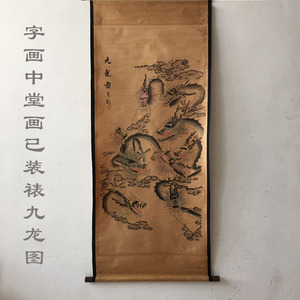 字画中堂画已装裱九龙图
九龍